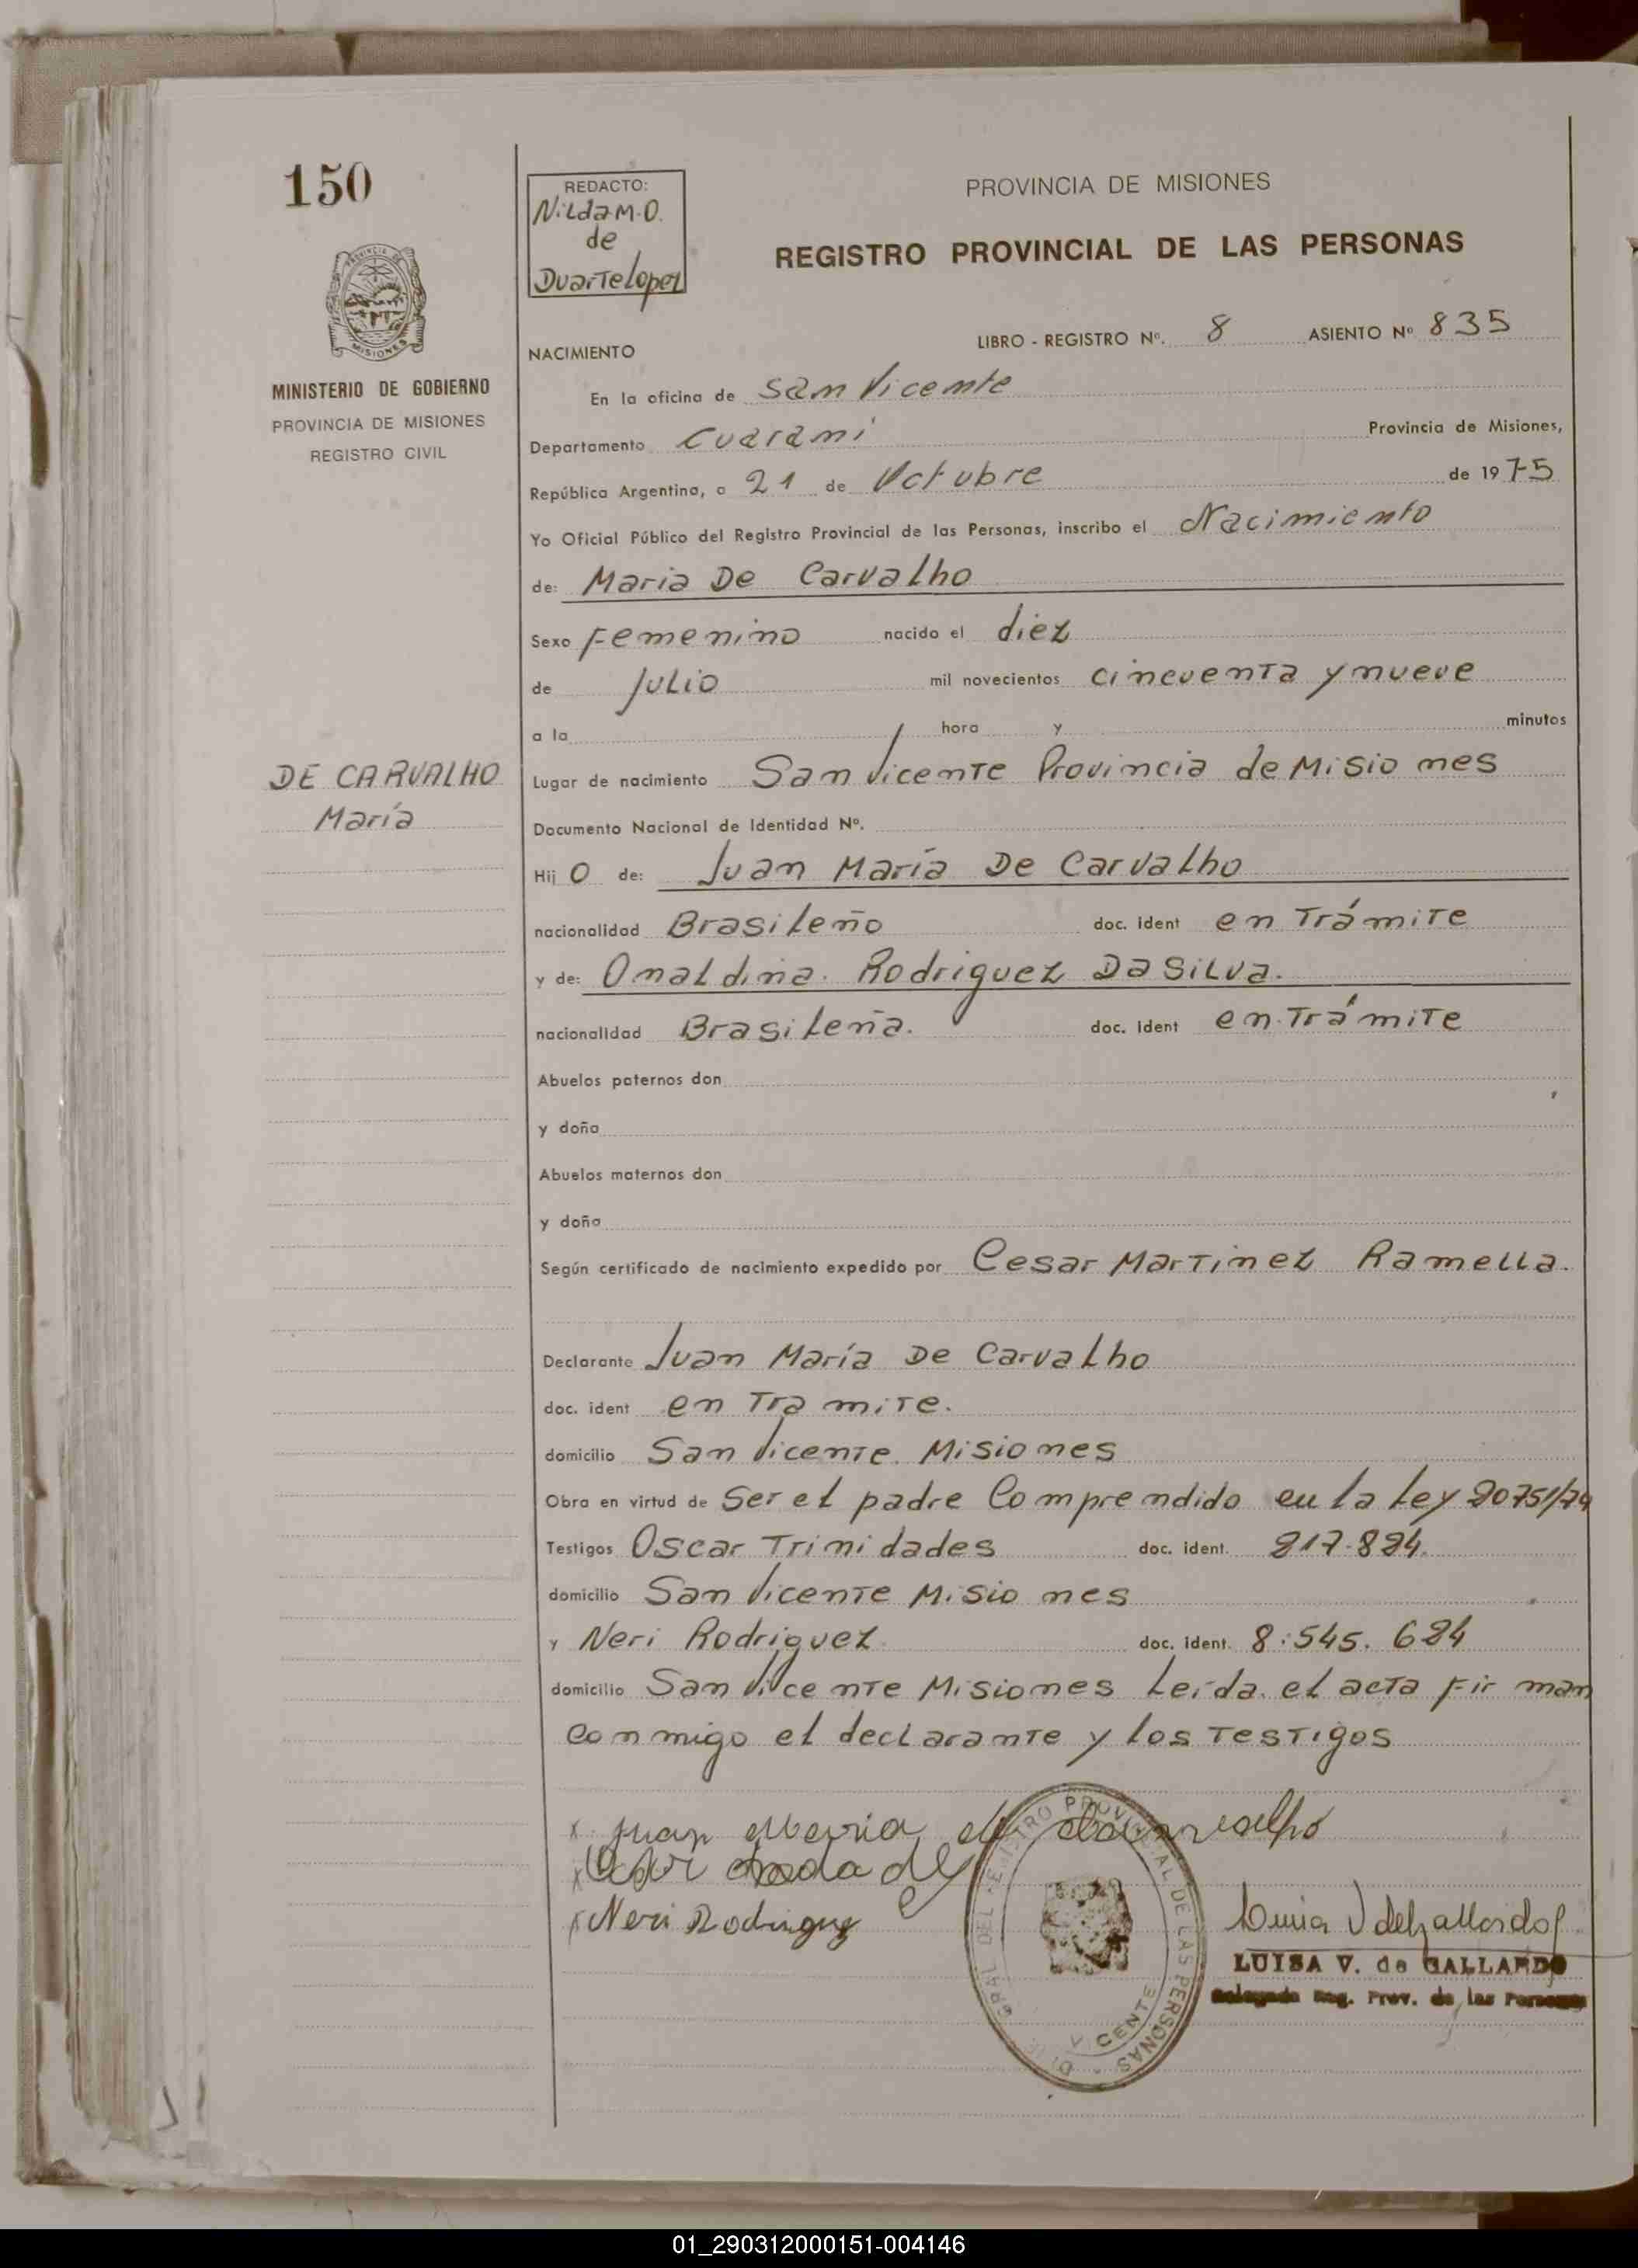 150
REDACTO:
Nilda M.O.
de
Duarte Lopez
PROVINCIA DE MISIONES
REGISTRO PROVINCIAL DE LAS PERSONAS
MISIONES
MINISTERIO DE GOBIERNO
PROVINCIA DE MISIONES
REGISTRO CIVIL
LIBRO - REGISTRO Nº. 8 ASIENTO Nº 835
NACIMIENTO
En la oficina de San Vicente
Departamento Guaraní Provincia de Misiones,
República Argentina, a 21 de Octubre de 1975
Yo Oficial Público del Registro Provincial de las Personas, inscribo el Nacimiento
de: Maria De Carvalho
Sexo Femenino nacido el diez
de Julio mil novecientos cincuenta y nueve
a la hora y minutos
DE CARVALHO
María
Lugar de nacimiento San Vicente Provincia de Misiones
Documento Nacional de Identidad Nº.
Hij O de: Juan María De Carvalho
nacionalidad Brasileño doc. ident en Trámite
y de: Onaldina Rodriguez Da Silva.
nacionalidad Brasileña. doc. ident en Trámite
Abuelos paternos don
y doña
Abuelos maternos don
y doña
Según certificado de nacimiento expedido por Cesar Martinez Ramella.
Declarante Juan María De Carvalho
doc. ident en Tramite.
domicilio San Vicente Misiones
Obra en virtud de Ser el padre Comprendido en la Ley
Testigos Oscar Trinidades doc. ident.
domicilio San Vicente Misiones
y Neri Rodriguez doc. ident. 8.545.624
domicilio San Vicente Misiones Leída el acta firman
conmigo el declarante y los Testigos
x Juan Maria de Carvalho
x
x Neri Rodriguez
LUISA V. de GALLARDO
Delegada Reg. Prov. de las Personas
REGISTRO PROVINCIAL DE LAS PERSONAS
VICENTE
01_290312000151-004146